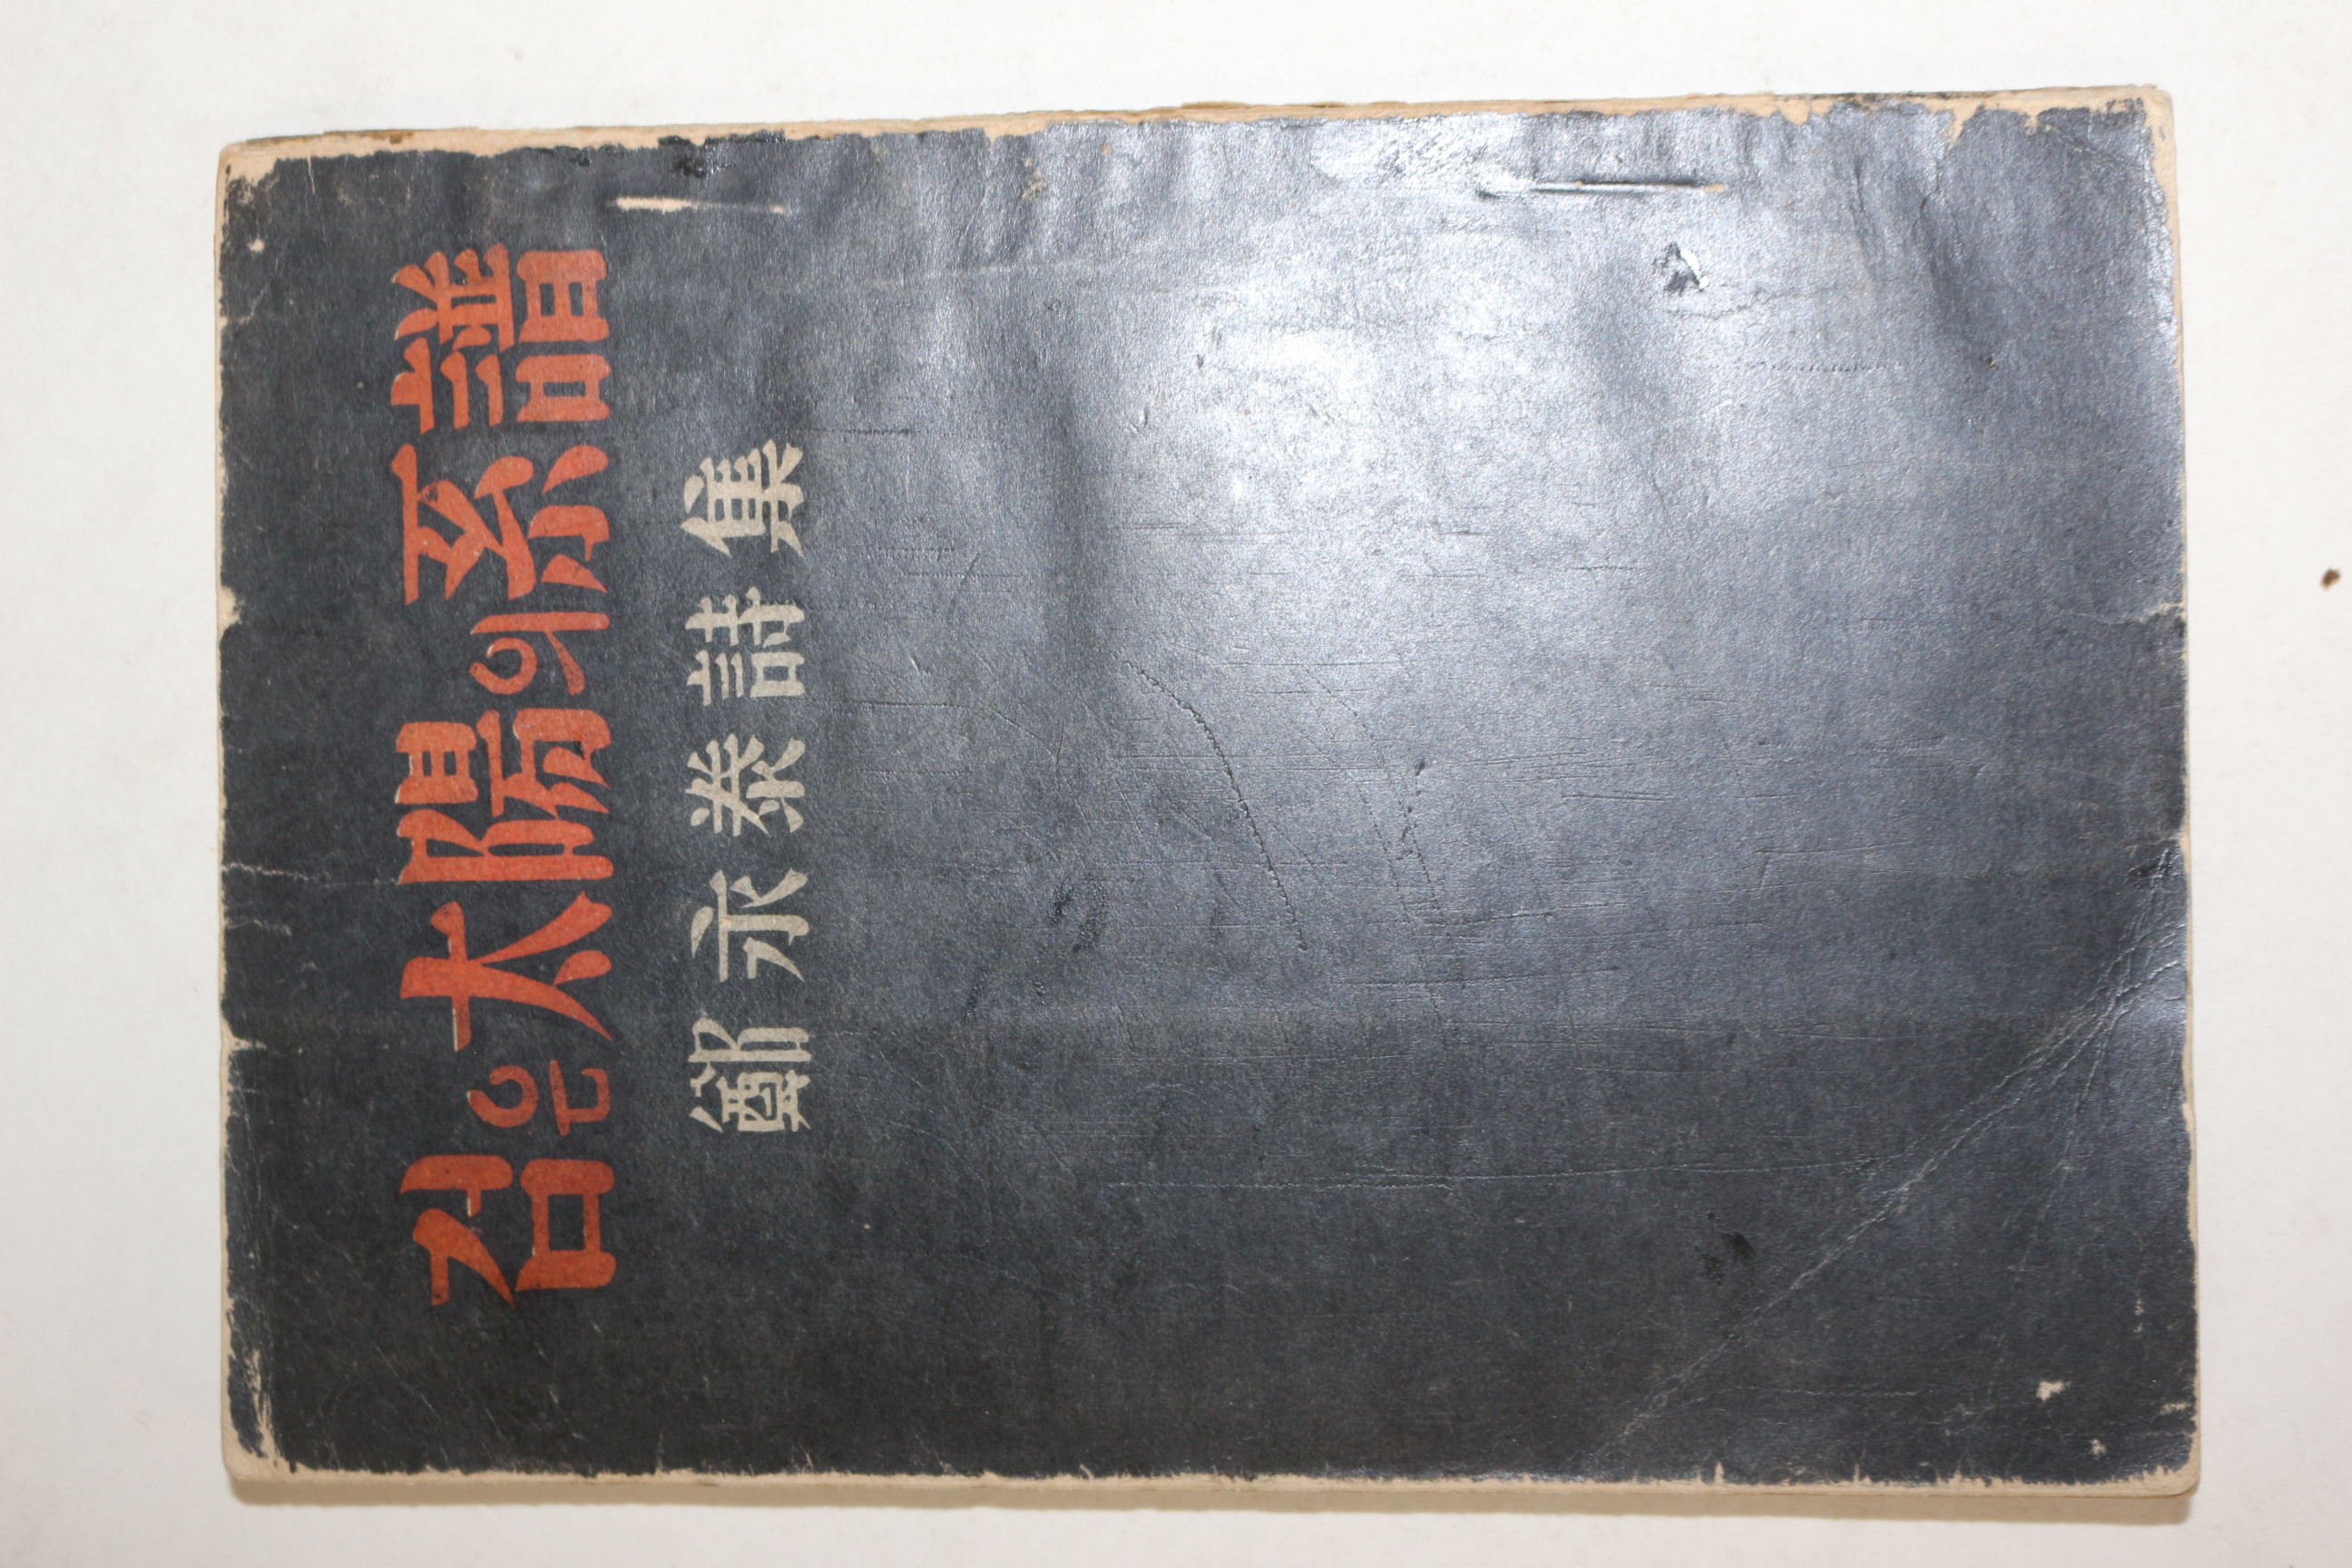 검은太陽의系譜
鄭永泰詩集